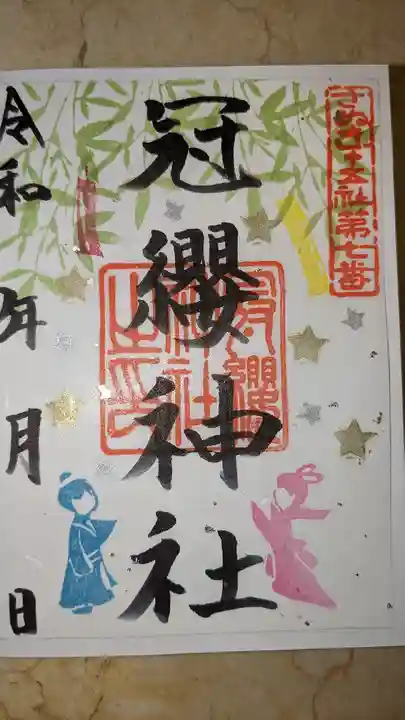 さぬき十五社第七番
冠纓神社
冠纓神社之印
令和 年 月 日